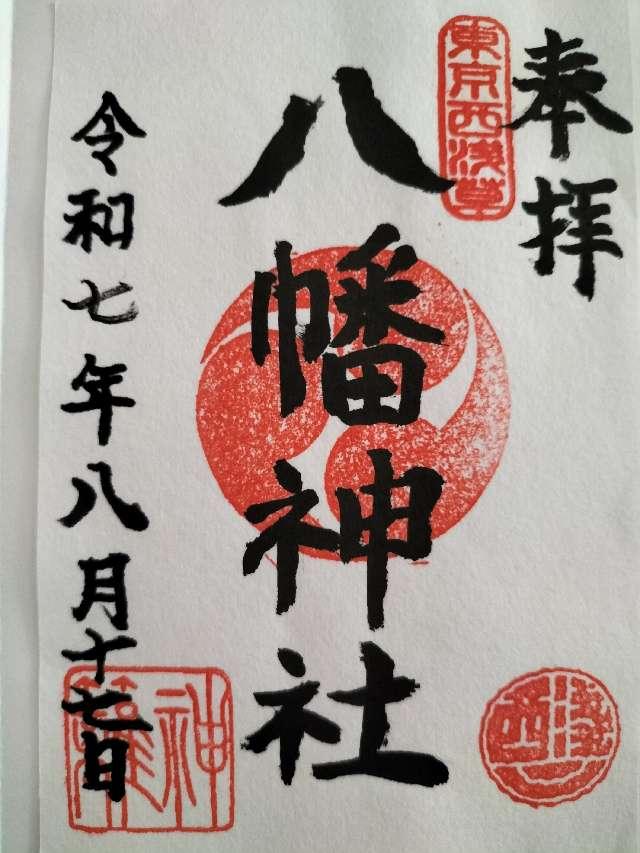 奉拝
東京西浅草
八幡神社
令和七年八月十七日